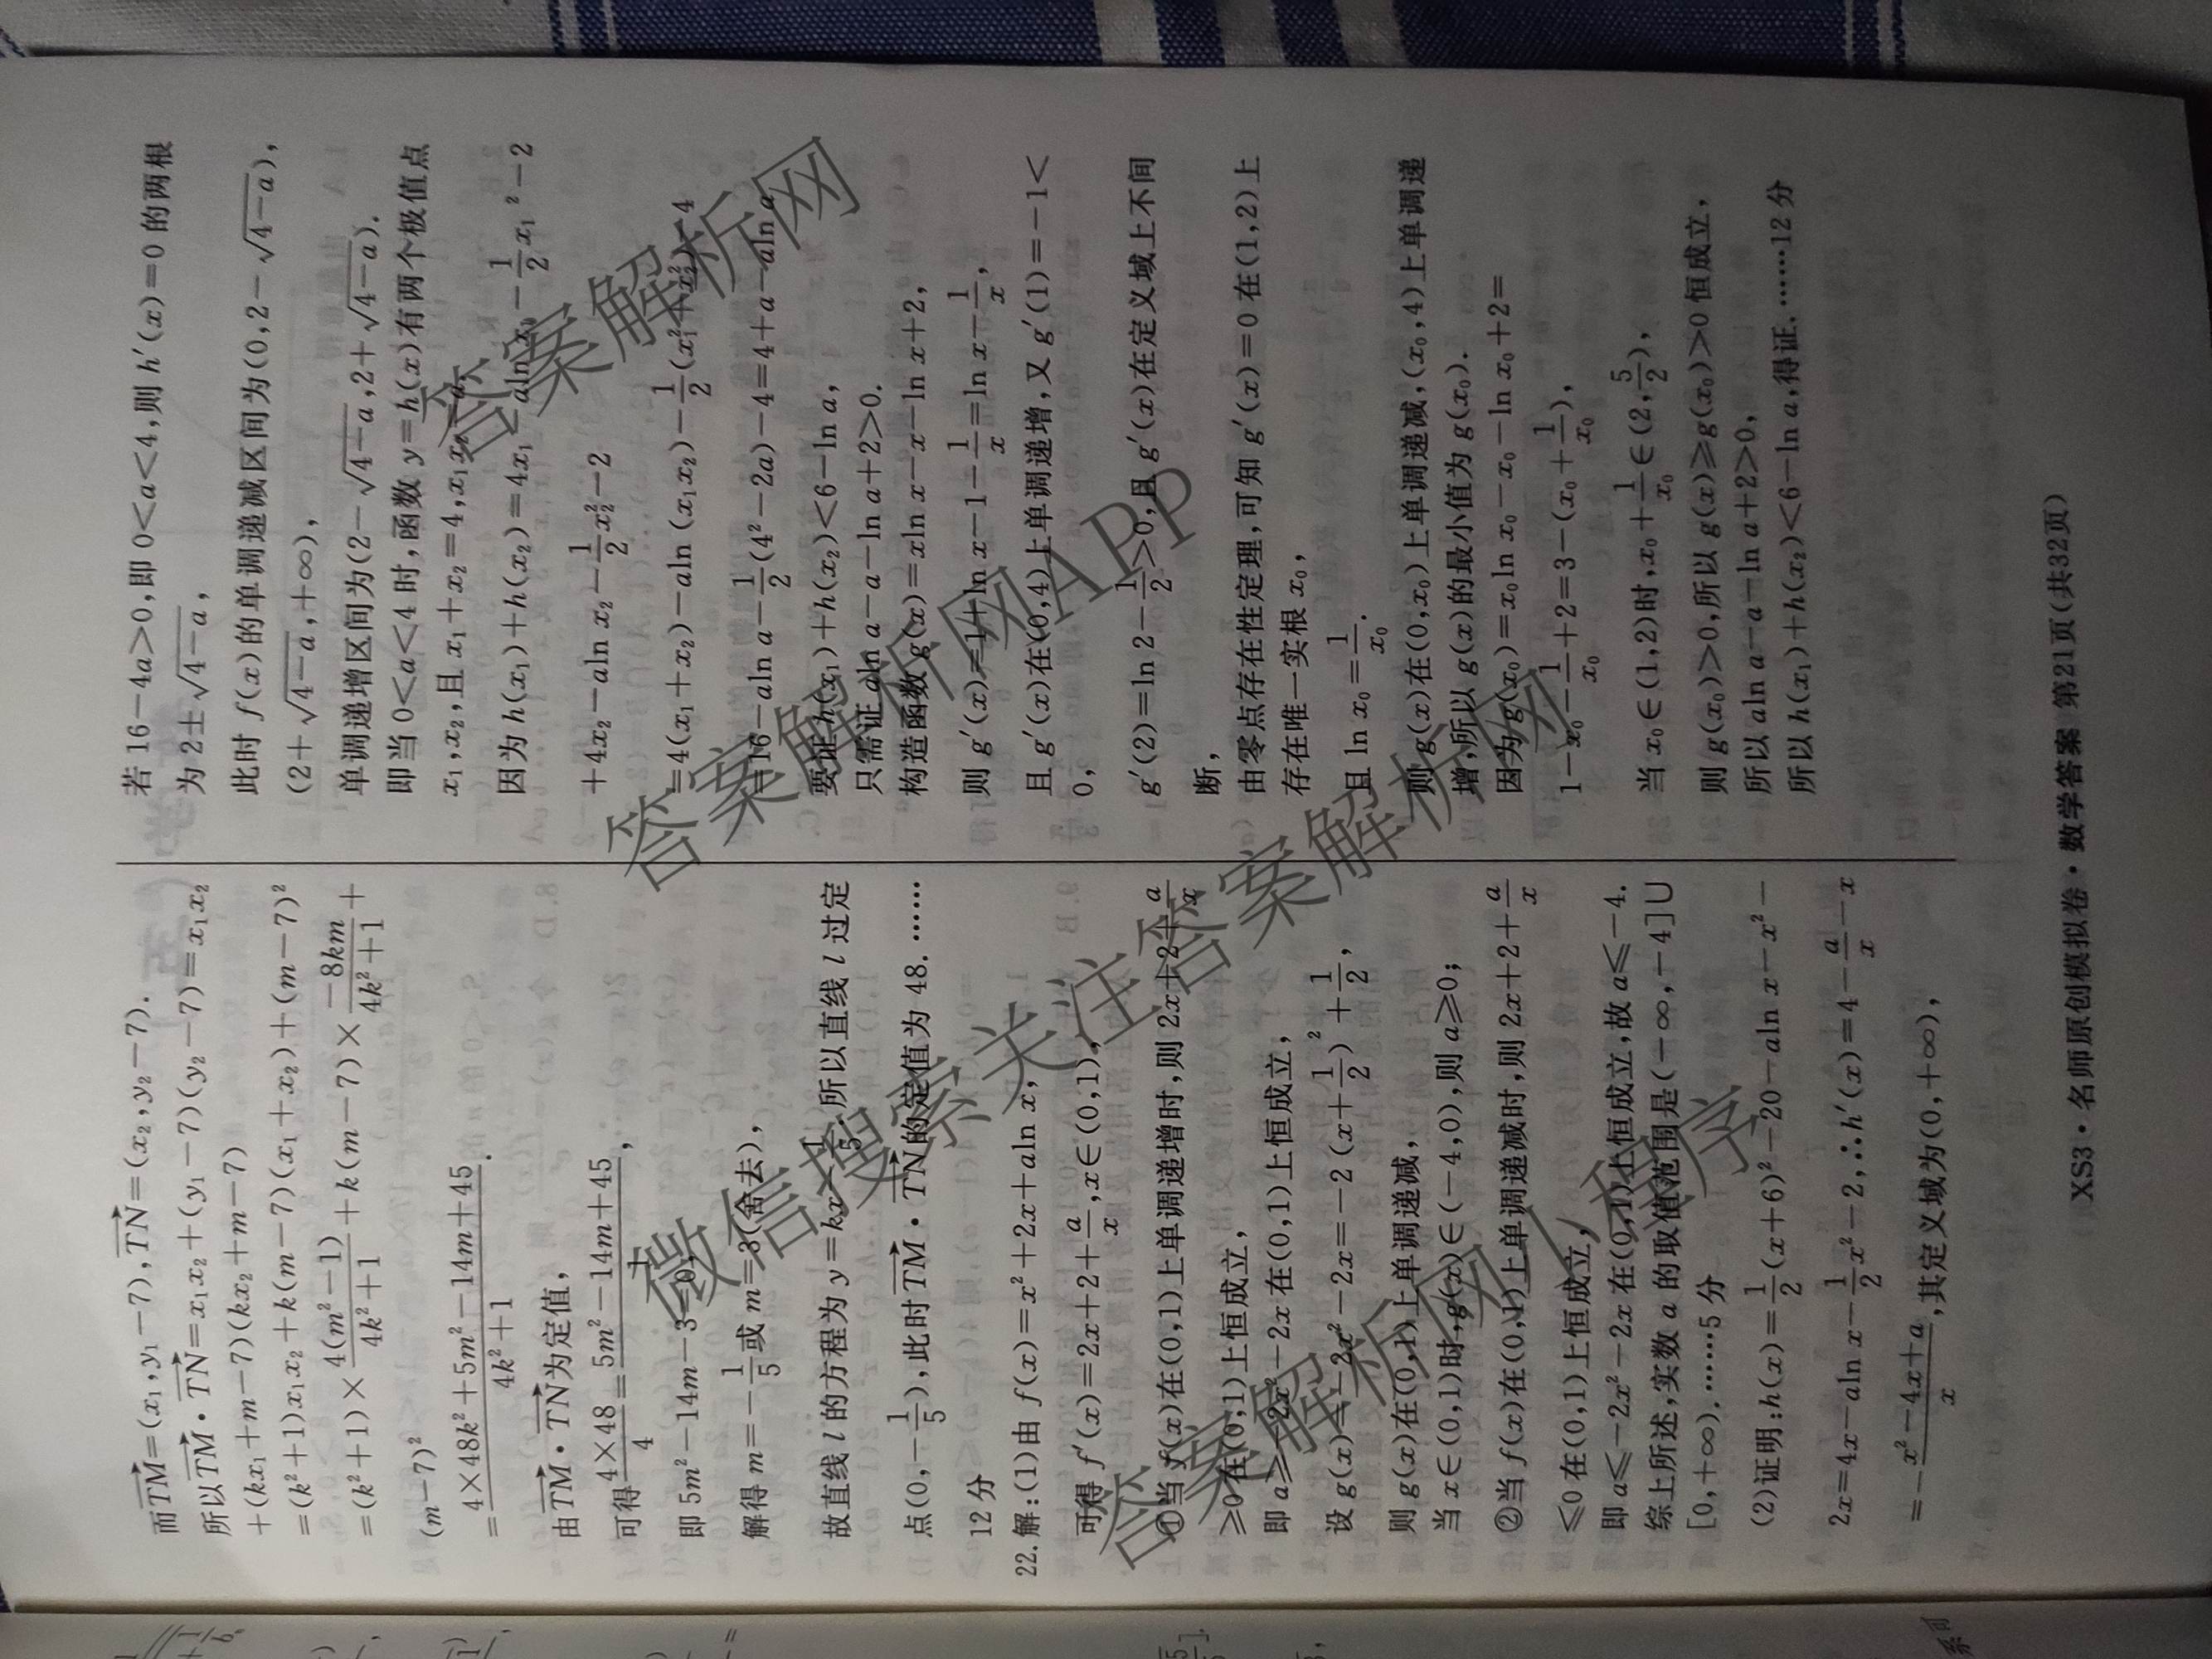 而TM=(x₁,y₁-7),TN=(x₂,y₂-7).
所以TM·TN=x₁x₂+(y₁-7)(y₂-7)=x₁x₂
+(kx₁+m-7)(kx₂+m-7)
=(k²+1)x₁x₂+k(m-7)(x₁+x₂)+(m-7)²
=(k²+1)×4(m²-1)/(4k²+1)+k(m-7)×-8km/(4k²+1)+
(m-7)²
=(4×48k²+5m²-14m+45)/(4k²+1).
由TM·TN为定值,
可得(4×48)/4=(5m²-14m+45)/1,
即5m²-14m-3=0,
解得m=-1/5或m=3(舍去),
故直线l的方程为y=kx-1/5,所以直线l过定
点(0,-1/5),此时TM·TN的定值为48.……
12分
22.解:(1)由f(x)=x²+2x+aln x,
可得f′(x)=2x+2+a/x,x∈(0,1),
①当f(x)在(0,1)上单调递增时,则2x+2+a/x
≥0在(0,1)上恒成立,
即a≥-2x²-2x在(0,1)上恒成立,
设g(x)=-2x²-2x=-2(x+1/2)²+1/2,
则g(x)在(0,1)上单调递减,
当x∈(0,1)时,g(x)∈(-4,0),则a≥0;
②当f(x)在(0,1)上单调递减时,则2x+2+a/x
≤0在(0,1)上恒成立,
即a≤-2x²-2x在(0,1)上恒成立,故a≤-4.
综上所述,实数a的取值范围是(-∞,-4]∪
[0,+∞).……5分
(2)证明:h(x)=1/2(x+6)²-20-aln x-x²-
2x=4x-aln x-1/2x²-2,∴h′(x)=4-a/x-x
=-(x²-4x+a)/x,其定义域为(0,+∞),
若16-4a>0,即0<a<4,则h′(x)=0的两根
为2±√(4-a),
此时f(x)的单调递减区间为(0,2-√(4-a)),
(2+√(4-a),+∞),
单调递增区间为(2-√(4-a),2+√(4-a)).
即当0<a<4时,函数y=h(x)有两个极值点
x₁,x₂,且x₁+x₂=4,x₁x₂=a.
因为h(x₁)+h(x₂)=4x₁-aln x₁-1/2x₁²-2
+4x₂-aln x₂-1/2x₂²-2
=4(x₁+x₂)-aln(x₁x₂)-1/2(x₁²+x₂²)-4
=16-aln a-1/2(4²-2a)-4=4+a-aln a
要证h(x₁)+h(x₂)<6-ln a,
只需证aln a-a-ln a+2>0.
构造函数g(x)=xln x-x-ln x+2,
则g′(x)=1+ln x-1-1/x=ln x-1/x,
且g′(x)在(0,4)上单调递增,又g′(1)=-1<
0,
g′(2)=ln 2-1/2>0,且g′(x)在定义域上不间
断,
由零点存在性定理,可知g′(x)=0在(1,2)上
存在唯一实根x₀,
且ln x₀=1/x₀.
则g(x)在(0,x₀)上单调递减,(x₀,4)上单调递
增,所以g(x)的最小值为g(x₀).
因为g(x₀)=x₀ln x₀-x₀-ln x₀+2=
1-x₀-1/x₀+2=3-(x₀+1/x₀),
当x₀∈(1,2)时,x₀+1/x₀∈(2,5/2),
则g(x₀)>0,所以g(x)≥g(x₀)>0恒成立,
所以aln a-a-ln a+2>0,
所以h(x₁)+h(x₂)<6-ln a,得证.……12分
XS3·名师原创模拟卷·数学答案 第21页(共32页)
答案解析网
答案解析网APP
微信搜索关注答案解析网
答案解析网小程序